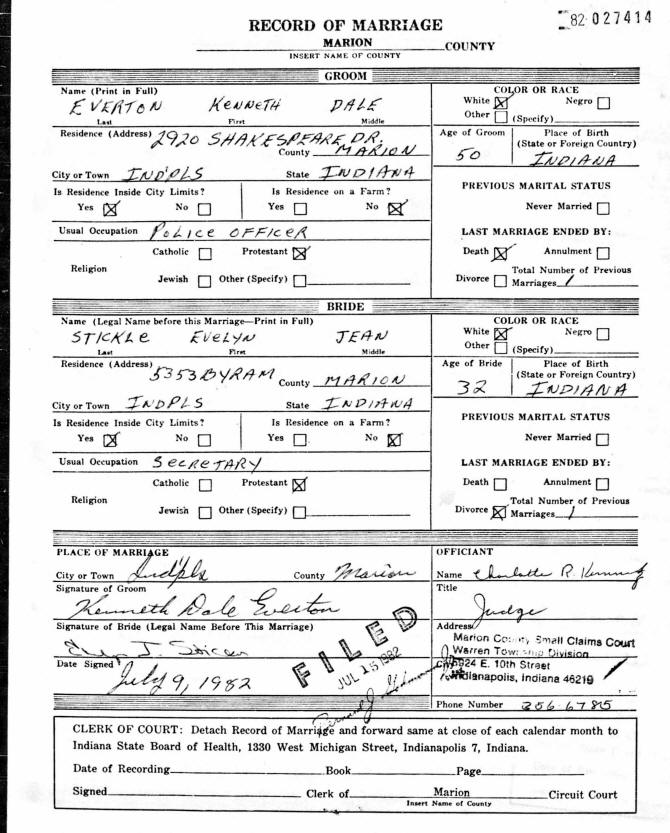 82-027414
RECORD OF MARRIAGE
MARION COUNTY
INSERT NAME OF COUNTY
GROOM
Name (Print in Full)
EVERTON KENNETH DALE
Last First Middle
COLOR OR RACE
White ☒ Negro ☐
Other ☐ (Specify)
Residence (Address) 2920 SHAKESPEARE DR.
County MARION
City or Town INDPLS State INDIANA
Age of Groom
50
Place of Birth
(State or Foreign Country)
INDIANA
Is Residence Inside City Limits?
Yes ☒ No ☐
Is Residence on a Farm?
Yes ☐ No ☒
PREVIOUS MARITAL STATUS
Never Married ☐
Usual Occupation POLICE OFFICER
LAST MARRIAGE ENDED BY:
Death ☒ Annulment ☐
Divorce ☐ Total Number of Previous
Marriages 1
Religion
Catholic ☐ Protestant ☒
Jewish ☐ Other (Specify) ☐
BRIDE
Name (Legal Name before this Marriage—Print in Full)
STICKLE EVELYN JEAN
Last First Middle
COLOR OR RACE
White ☒ Negro ☐
Other ☐ (Specify)
Residence (Address) 5353 BYRAM County MARION
City or Town INDPLS State INDIANA
Age of Bride
32
Place of Birth
(State or Foreign Country)
INDIANA
Is Residence Inside City Limits?
Yes ☒ No ☐
Is Residence on a Farm?
Yes ☐ No ☒
PREVIOUS MARITAL STATUS
Never Married ☐
Usual Occupation SECRETARY
LAST MARRIAGE ENDED BY:
Death ☐ Annulment ☐
Divorce ☒ Total Number of Previous
Marriages 1
Religion
Catholic ☐ Protestant ☒
Jewish ☐ Other (Specify) ☐
PLACE OF MARRIAGE
City or Town Ind'pls County Marion
Signature of Groom
Kenneth Dale Everton
Signature of Bride (Legal Name Before This Marriage)
Date Signed July 9, 1982
FILED
JUL 15 1982
OFFICIANT
Name Charlotte R.
Title
Judge
Address
Marion County Small Claims Court
Warren Township Division
5924 E. 10th Street
Indianapolis, Indiana 46219
Phone Number 356-6785
CLERK OF COURT: Detach Record of Marriage and forward same at close of each calendar month to
Indiana State Board of Health, 1330 West Michigan Street, Indianapolis 7, Indiana.
Date of Recording Book Page
Signed Clerk of Marion Circuit Court
Insert Name of County